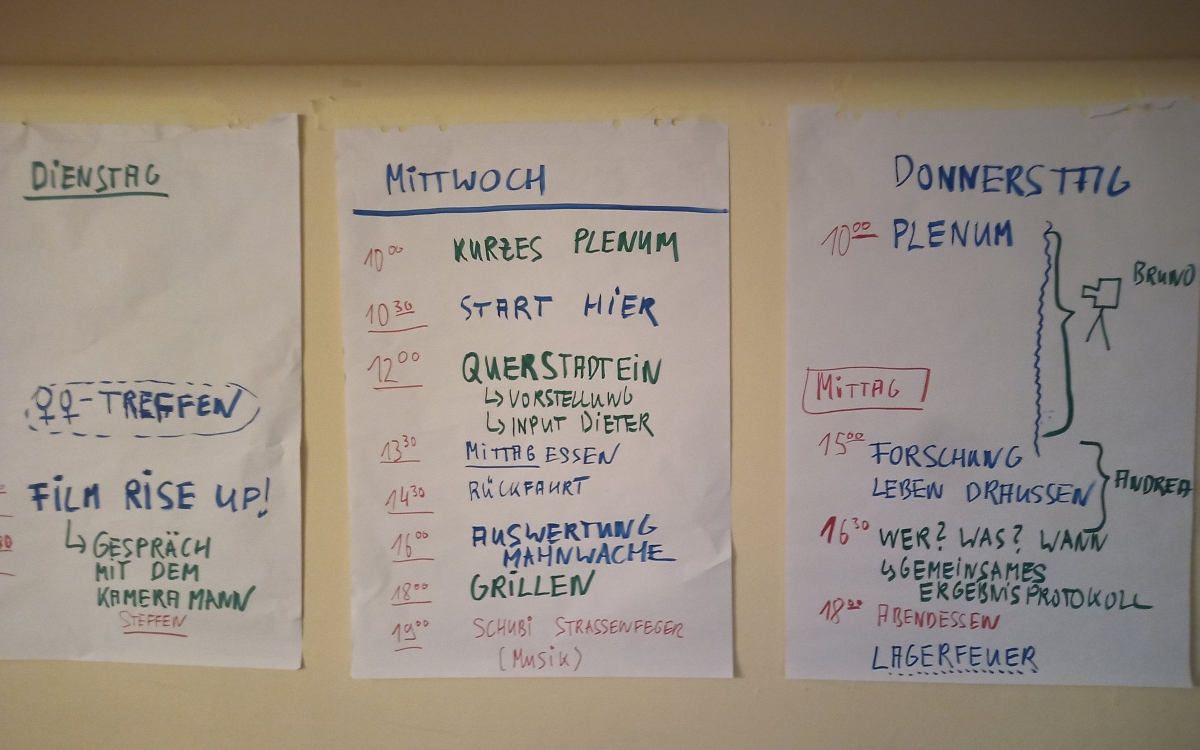 DIENSTAG
♀♀-TREFFEN
FILM RISE UP!
↳ GESPRÄCH
MIT DEM
KAMERAMANN
STEFFEN
MITTWOCH
10 00 KURZES PLENUM
10 30 START HIER
12 00 QUERSTADTEIN
↳ VORSTELLUNG
↳ INPUT DIETER
13 30 MITTAGESSEN
14 30 RÜCKFAHRT
16 00 AUSWERTUNG
MAHNWACHE
18 00 GRILLEN
19 00 SCHUBI STRASSENFEGER
(MUSIK)
DONNERSTAG
10 00 PLENUM
BRUNO
MITTAG
15 00 FORSCHUNG
LEBEN DRAUSSEN
ANDREA
16 30 WER? WAS? WANN
↳ GEMEINSAMES
ERGEBNISPROTOKOLL
18 00 ABENDESSEN
LAGERFEUER